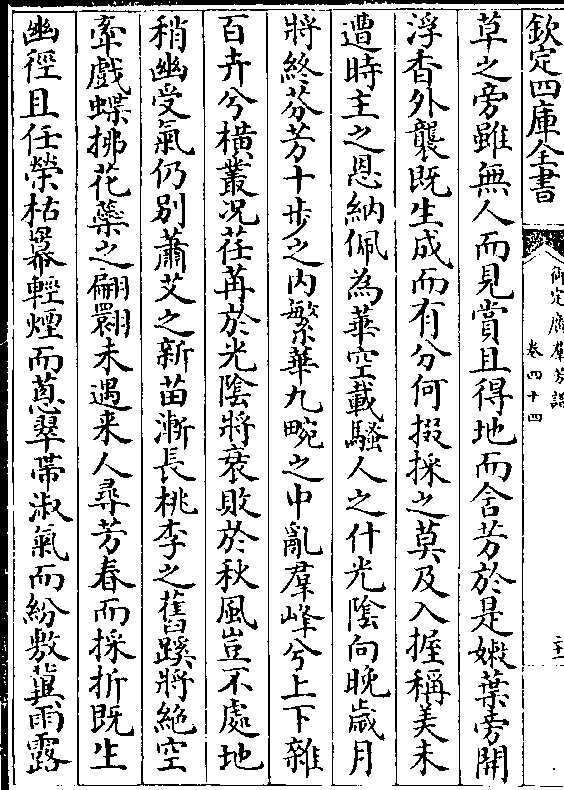 欽定四庫全書
御定廣羣芳譜
卷四十四
主
草之旁雖無人而見賞且得地而含芳於是嫩葉旁開
浮香外襲既生成而有分何掇採之莫及入握稱美未
遭時主之恩納佩為華空載騷人之什光隂向晚歳月
將終芬芳十步之内繁華九畹之中亂羣峰兮上下雜
百卉兮横叢况荏苒於光隂將衰敗於秋風豈不處地
稍幽受氣仍别蕭艾之新苗漸長桃李之舊蹊將絶空
牽戲蝶拂花蘂之翩翾未遇来人尋芳春而採折既生
幽徑且任榮枯羃輕煙而蔥翠帶淑氣而紛敷冀雨露